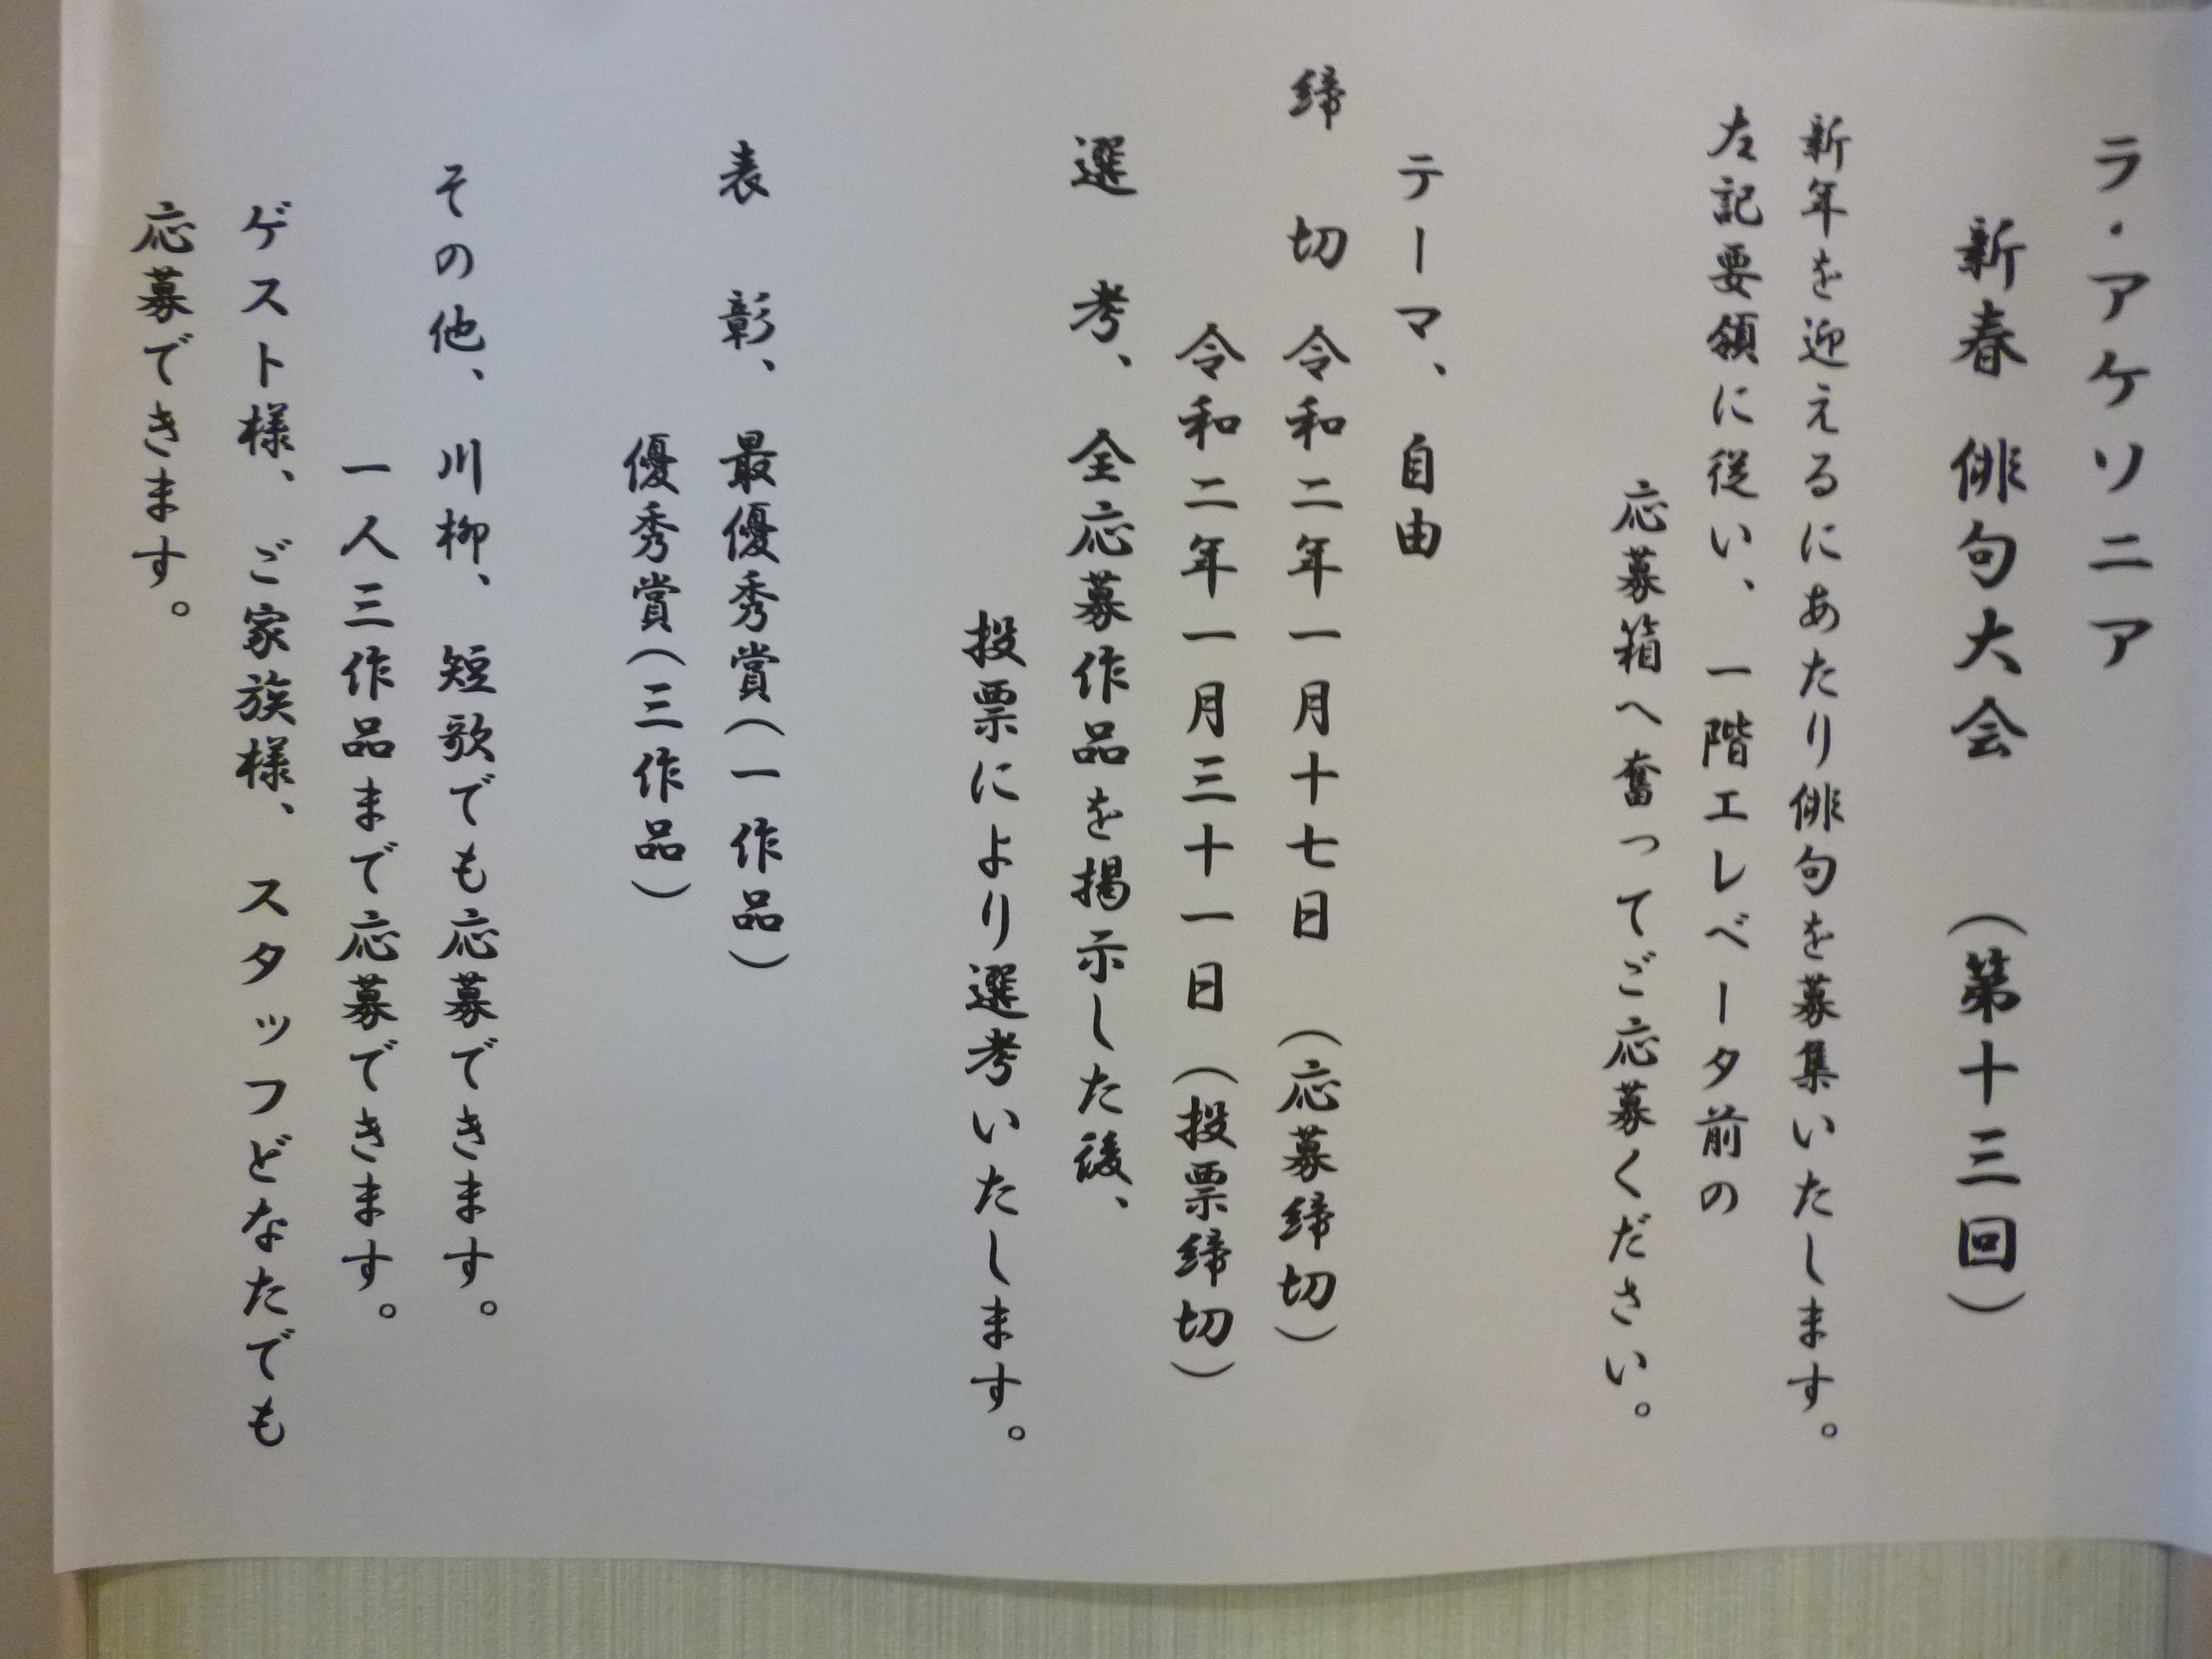 ラ・アケソニア
新春 俳句大会 (第十三回)
新年を迎えるにあたり俳句を募集いたします。
左記要領に従い、一階エレベータ前の
応募箱へ奮ってご応募ください。
テーマ、自由
締 切 令和二年一月十七日 (応募締切)
令和二年一月三十一日 (投票締切)
選 考、全応募作品を掲示した後、
投票により選考いたします。
表 彰、最優秀賞(一作品)
優秀賞(三作品)
その他、川柳、短歌でも応募できます。
一人三作品まで応募できます。
ゲスト様、ご家族様、スタッフどなたでも
応募できます。